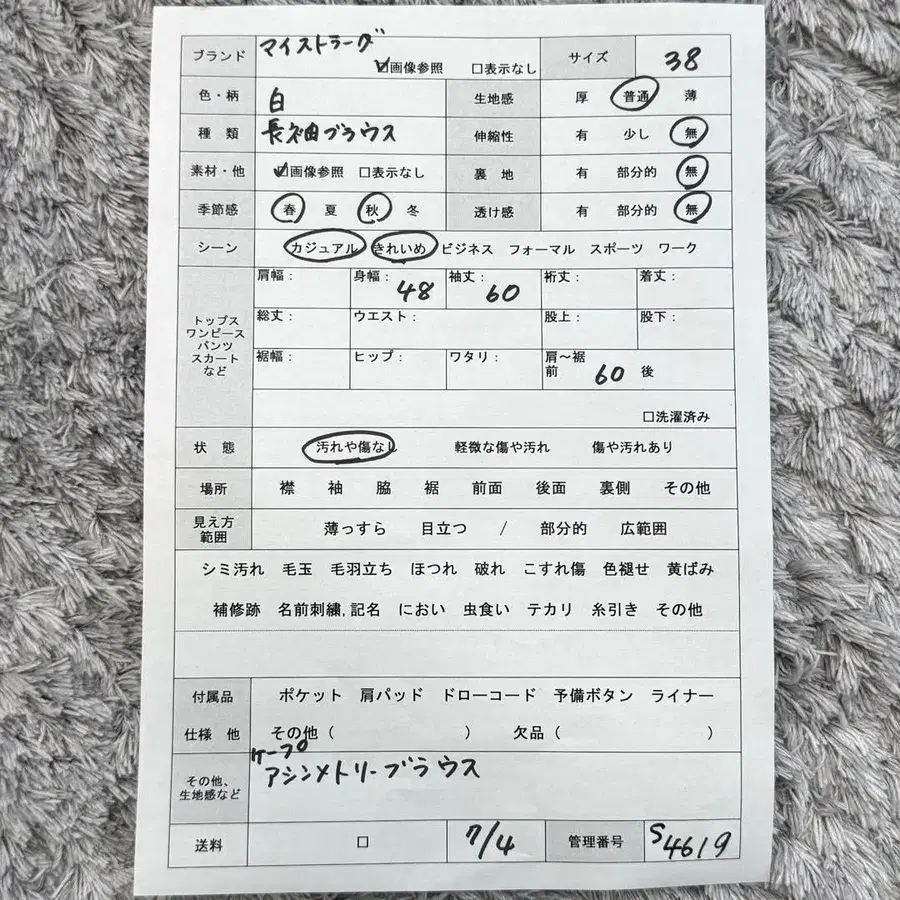 ブランド マイストラーダ ☑画像参照 □表示なし サイズ 38
色・柄 白 生地感 厚 普通 薄
種類 長袖ブラウス 伸縮性 有 少し 無
素材・他 ☑画像参照 □表示なし 裏地 有 部分的 無
季節感 春 夏 秋 冬 透け感 有 部分的 無
シーン カジュアル きれいめ ビジネス フォーマル スポーツ ワーク
トップス
ワンピース
パンツ
スカート
など
肩幅： 身幅：48 袖丈：60 裄丈： 着丈：
総丈： ウエスト： 股上： 股下：
裾幅： ヒップ： ワタリ： 肩〜裾
前 60 後
□洗濯済み
状態 汚れや傷なし 軽微な傷や汚れ 傷や汚れあり
場所 襟 袖 脇 裾 前面 後面 裏側 その他
見え方
範囲
薄っすら 目立つ / 部分的 広範囲
シミ汚れ 毛玉 毛羽立ち ほつれ 破れ こすれ傷 色褪せ 黄ばみ
補修跡 名前刺繍,記名 におい 虫食い テカリ 糸引き その他
付属品 ポケット 肩パッド ドローコード 予備ボタン ライナー
仕様 他 その他（ ） 欠品（ ）
その他、
生地感など
ケープ
アシンメトリーブラウス
送料 □ 7/4 管理番号 S4619